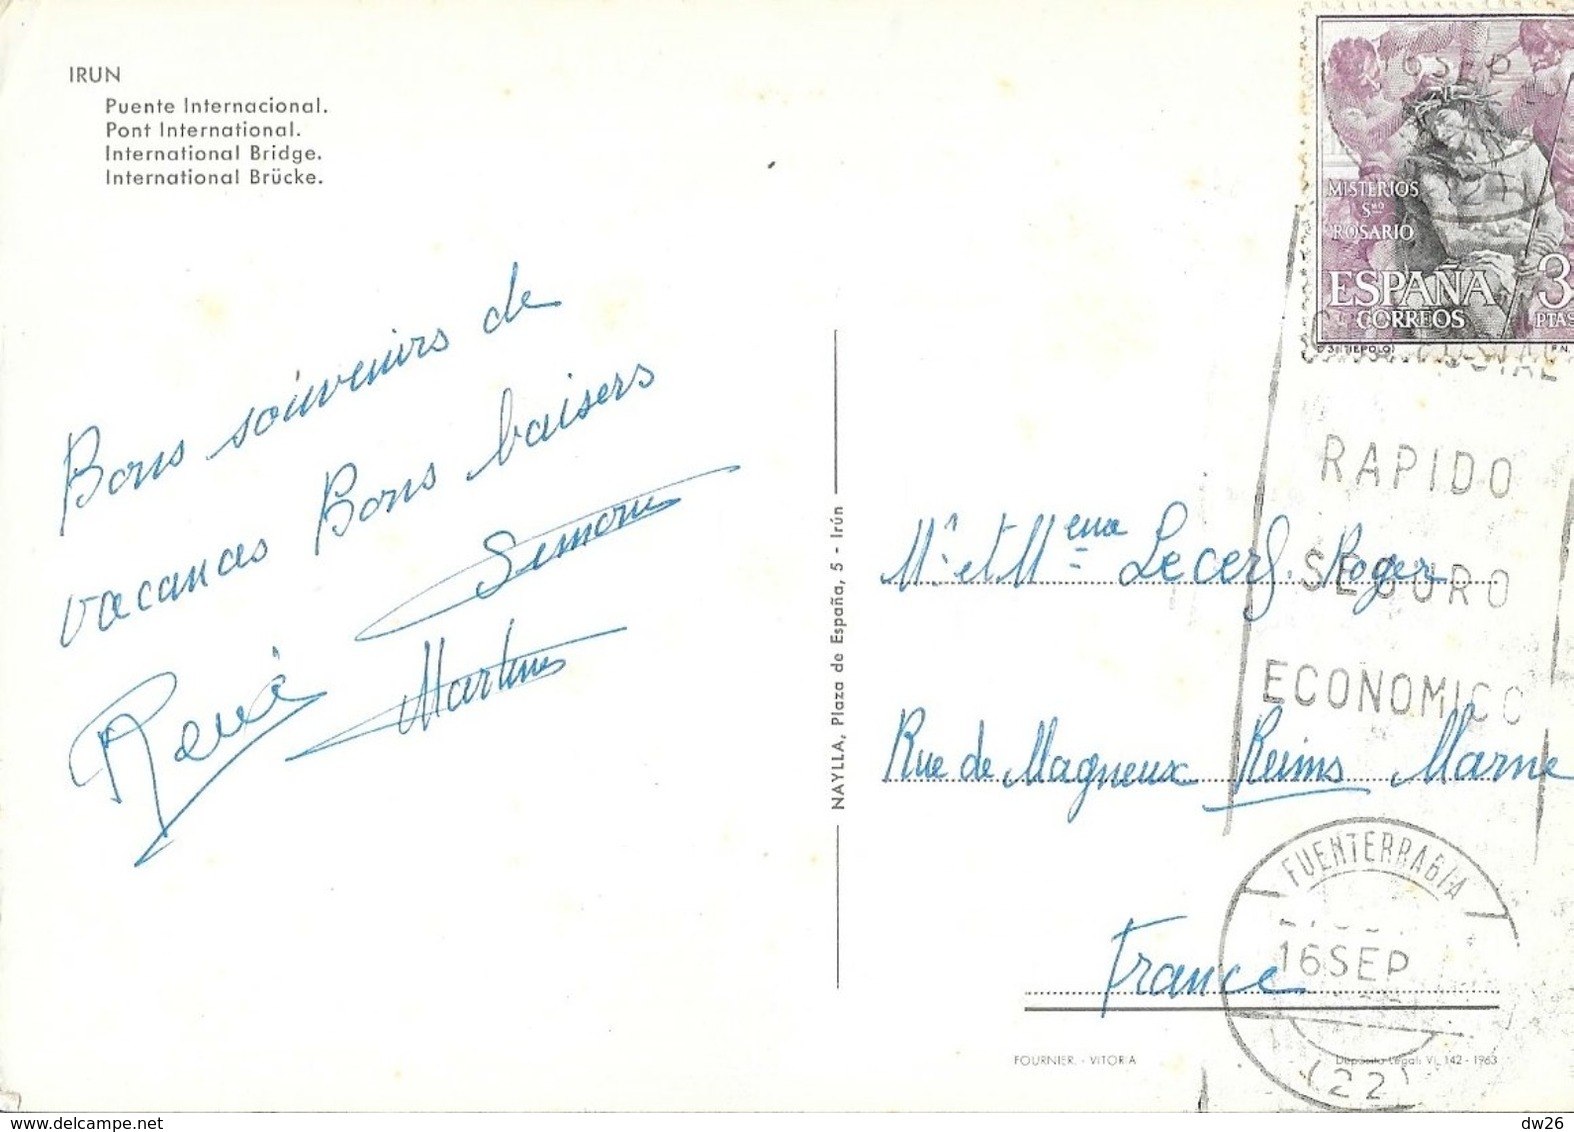 IRUN
Puente Internacional.
Pont International.
International Bridge.
International Brücke.
Bons souvenirs de
vacances Bons baisers
Simone
René Martine
NAYLLA, Plaza de España, 5 - Irún
16 SEP
MISTERIOS
Sno
ROSARIO
ESPAÑA 3
CORREOS PTAS
D 3 (TIEPOLO)
RAPIDO
SEGURO
ECONOMICO
Mr et Meme Lecerf Roger
Rue de Magneux Reims Marne
France
FUENTERRABIA
16 SEP
(22)
FOURNIER. - VITORIA
Depósito Legal: VI. 142 - 1963
delcampe.net
dw26